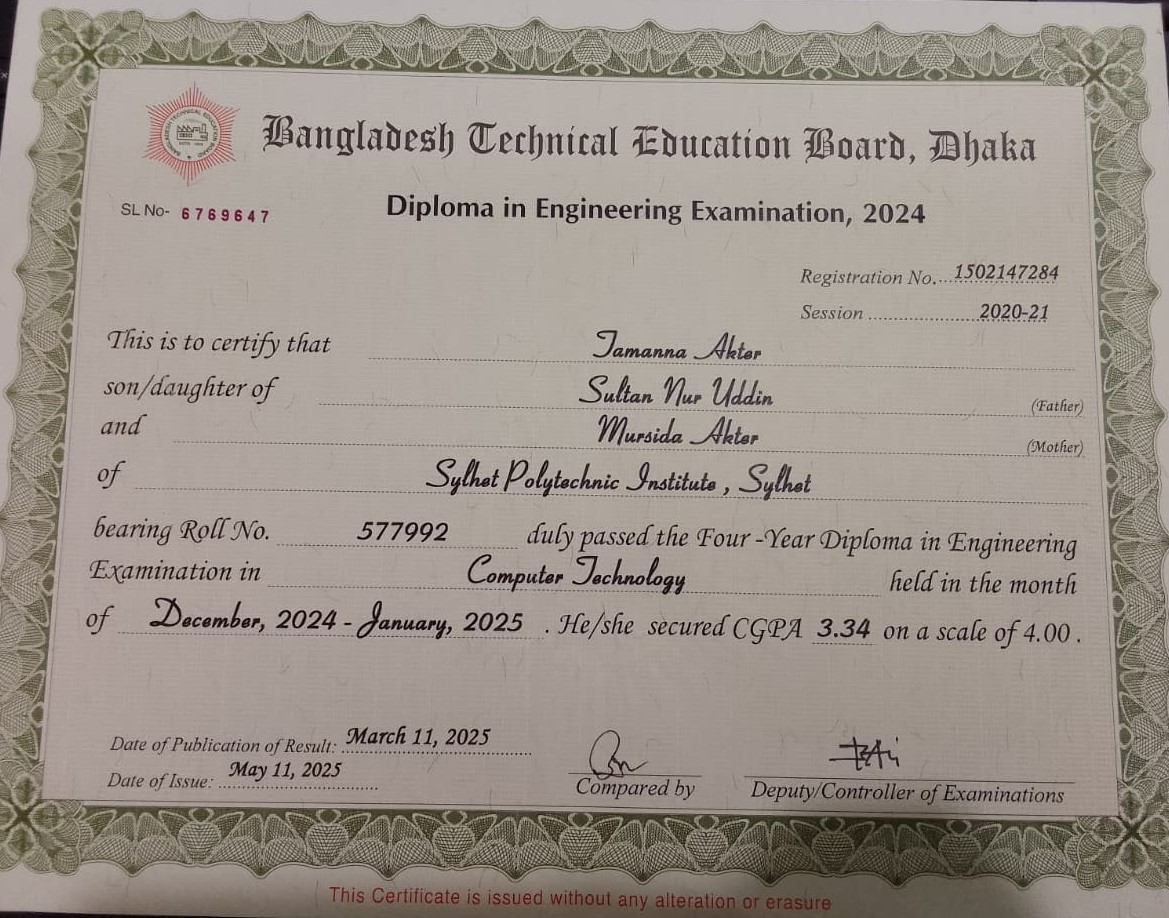 Bangladesh Technical Education Board, Dhaka
SL No- 6769647
Diploma in Engineering Examination, 2024
Registration No. 1502147284
Session 2020-21
This is to certify that Tamanna Akter
son/daughter of Sultan Nur Uddin (Father)
and Mursida Akter (Mother)
of Sylhet Polytechnic Institute , Sylhet
bearing Roll No. 577992 duly passed the Four -Year Diploma in Engineering
Examination in Computer Technology held in the month
of December, 2024 - January, 2025 . He/she secured CGPA 3.34 on a scale of 4.00 .
Date of Publication of Result: March 11, 2025
Date of Issue: May 11, 2025
Compared by
Deputy/Controller of Examinations
This Certificate is issued without any alteration or erasure